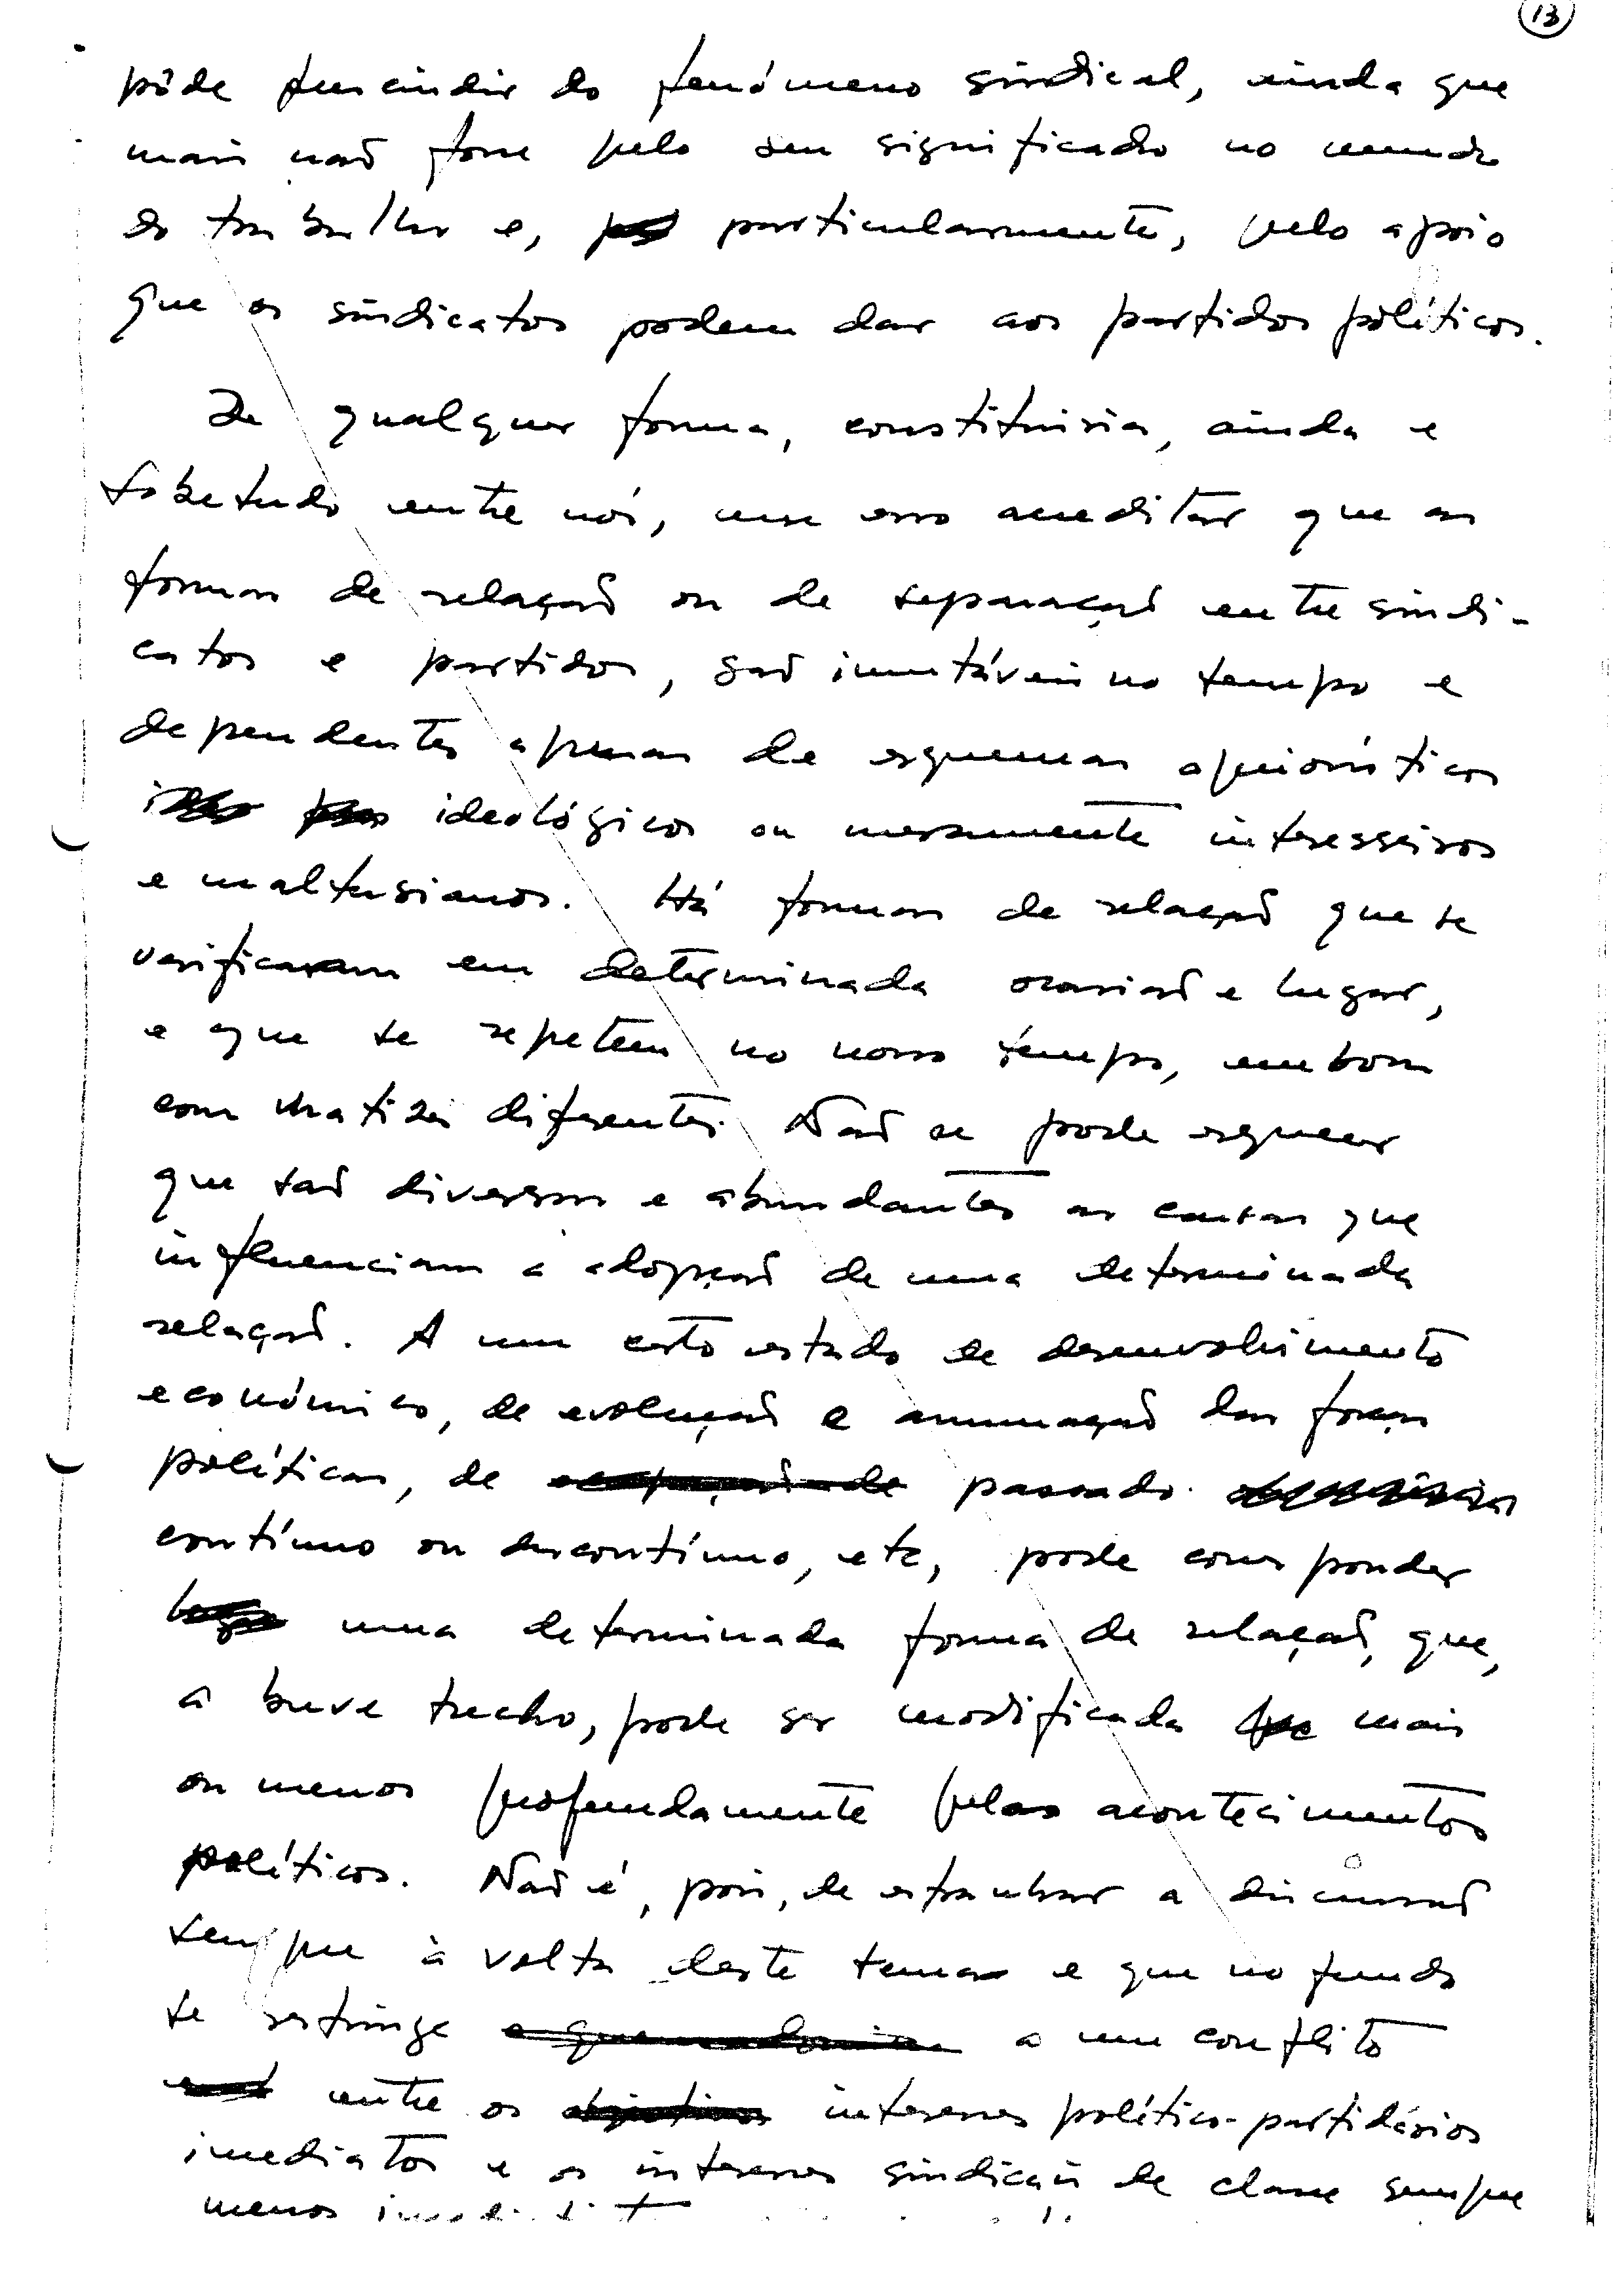 13
pôde prescindir do fenómeno sindical, ainda que
mais não fosse pelo seu significado no mundo
do trabalho e, particularmente, pelo apoio
que os sindicatos podem dar aos partidos políticos.
De qualquer forma, constituiria, ainda e
sobretudo entre nós, um erro acreditar que as
formas de relação ou de separação entre sindi-
catos e partidos, são imutáveis no tempo e
dependentes apenas de esquemas apriorísticos
ideológicos ou meramente interesseiros
e maltusianos. Há formas de relação que se
verificaram em determinada ocasião e lugar,
e que se repetem no nosso tempo, embora
com matizes diferentes. Não se pode esquecer
que são diversas e abundantes as causas que
influenciam a adopção de uma determinada
relação. A um certo estado de desenvolvimento
económico, de evolução e arrumação das forças
políticas, de passado
contínuo ou descontínuo, etc, pode corresponder
uma determinada forma de relação, que,
a breve trecho, pode ser modificada mais
ou menos profundamente pelos acontecimentos
políticos. Não é, pois, de estranhar a discussão
sempre à volta deste tema e que no fundo
se restringe a um conflito
entre os interesses político-partidários
imediatos e os interesses sindicais de classe sempre
menos